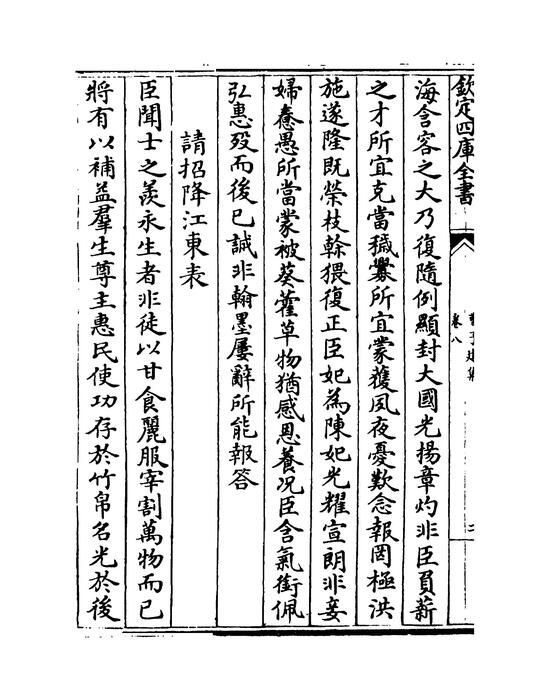 欽定四庫全書
卷八
海含容之大乃復隨例顯封大國光揚章灼非臣負薪
之才所宜克當穢釁所宜蒙獲夙夜憂歎念報罔極洪
施遂隆既榮枝幹猥復正臣妃為陳妃光耀宣朗非妾
婦惷愚所當蒙被葵藿草物猶感恩養况臣含氣銜佩
弘惠歿而後已誠非翰墨屢辭所能報答
請招降江東表
臣聞士之羨永生者非徒以甘食麗服宰割萬物而已
將有以補益羣生尊主惠民使功存於竹帛名光於後